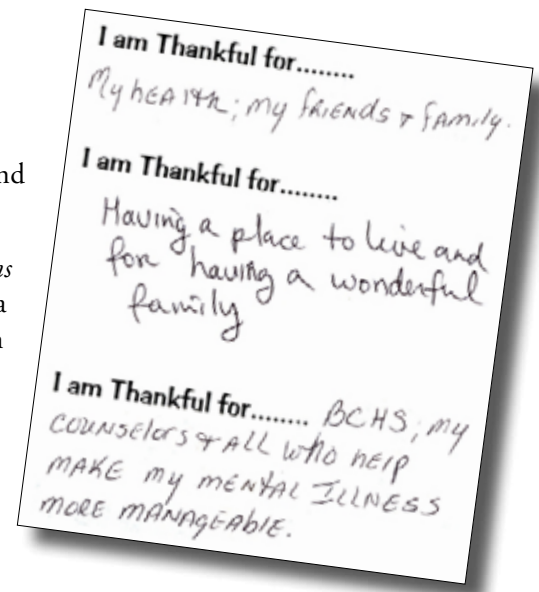 I am Thankful for........
My health; my friends & family.
I am Thankful for........
Having a place to live and
for having a wonderful
family
I am Thankful for........ BCHS; my
counselors & ALL who help
MAKE my MENTAL ILLNESS
MORE MANAGEABLE.
nd
ns
a